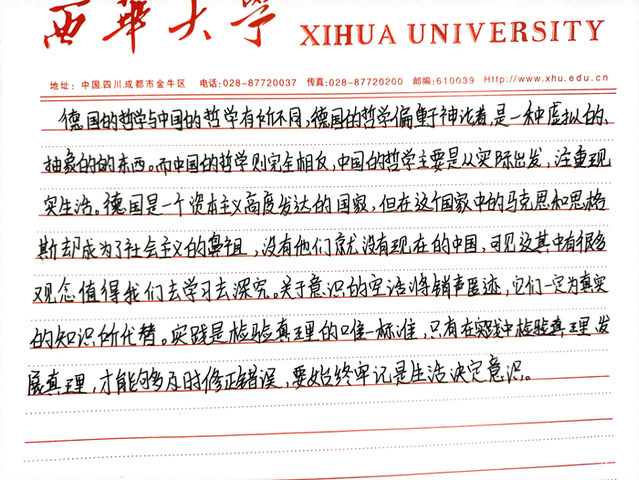 西华大学 XIHUA UNIVERSITY
地址：中国.四川.成都市金牛区 电话：028-87720037 传真：028-87720200 邮编：610039 Http://www.xhu.edu.cn
德国的哲学与中国的哲学有所不同，德国的哲学偏重于神论着，是一种虚拟的、
抽象的的东西。而中国的哲学则完全相反，中国的哲学主要是从实际出发，注重现
实生活。德国是一个资本主义高度发达的国家，但在这个国家中的马克思和思格
斯却成为了社会主义的鼻祖，没有他们就没有现在的中国，可见这其中有很多
观念值得我们去学习去深究。关于意识的空话将销声匿迹，它们一定为真实
的知识所代替。实践是检验真理的唯一标准，只有在实践中检验真理发
展真理，才能够及时修正错误，要始终牢记是生活决定意识。